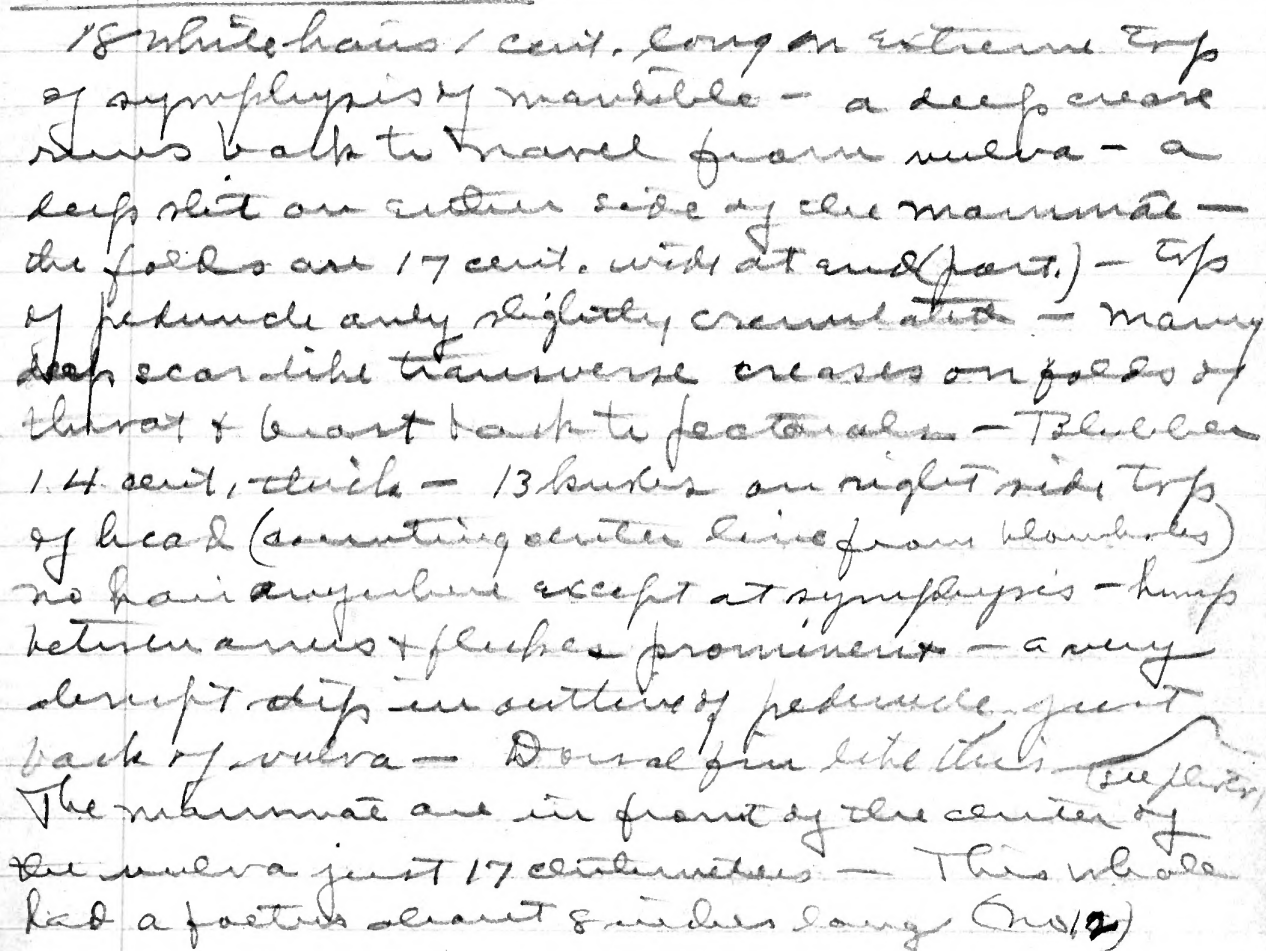 18 white hairs 1 cent. long on extreme top
of symphysis of mandible - a deep crease
runs back to navel from vulva - a
deep slit on either side of the mammae -
the folds are 17 cent. wide at end (post.) - top
of peduncle only slightly crenulated - many
deep scar-like transverse creases on folds of
throat & breast back to pectorals - Blubber
1.4 cent, thick - 13 bunches on right side top
of head (counting center line from blowholes)
no hair anywhere except at symphysis - hump
between anus & flukes prominent - a very
abrupt dip in outline of peduncle just
back of vulva - Dorsal fin like this (see photos)
The mammae are in front of the center of
the vulva just 17 centimeters - This whale
had a foetus about 8 inches long (No 12)